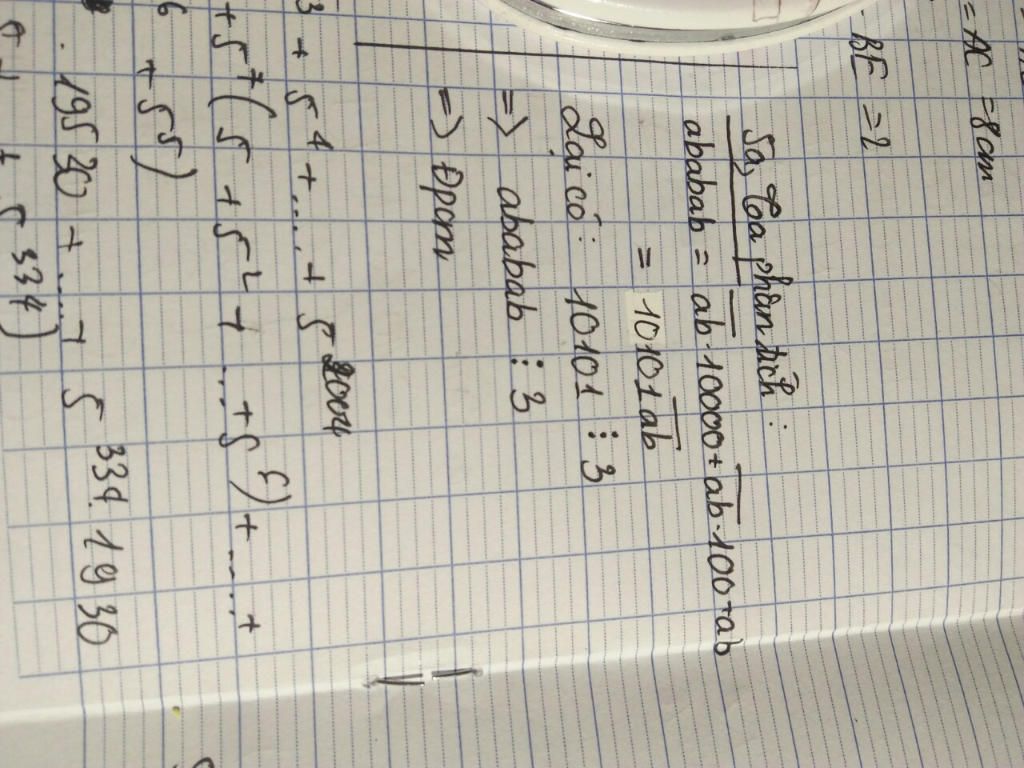 = AC = 8cm
BE = 2
5a, Ta phân tích :
ababab = ab . 10000 + ab . 100 + ab
= 10101 ab
Lại có : 10101 ⋮ 3
=> ababab ⋮ 3
=> Đpcm
3 + 5^4 + .... + 5^2004
+ 5^7 ( 5 + 5^2 + ... + 5^6 ) + ..... +
6 + 5^5 )
. 19530 + ..... + 5^334 . 19530
5^334 )